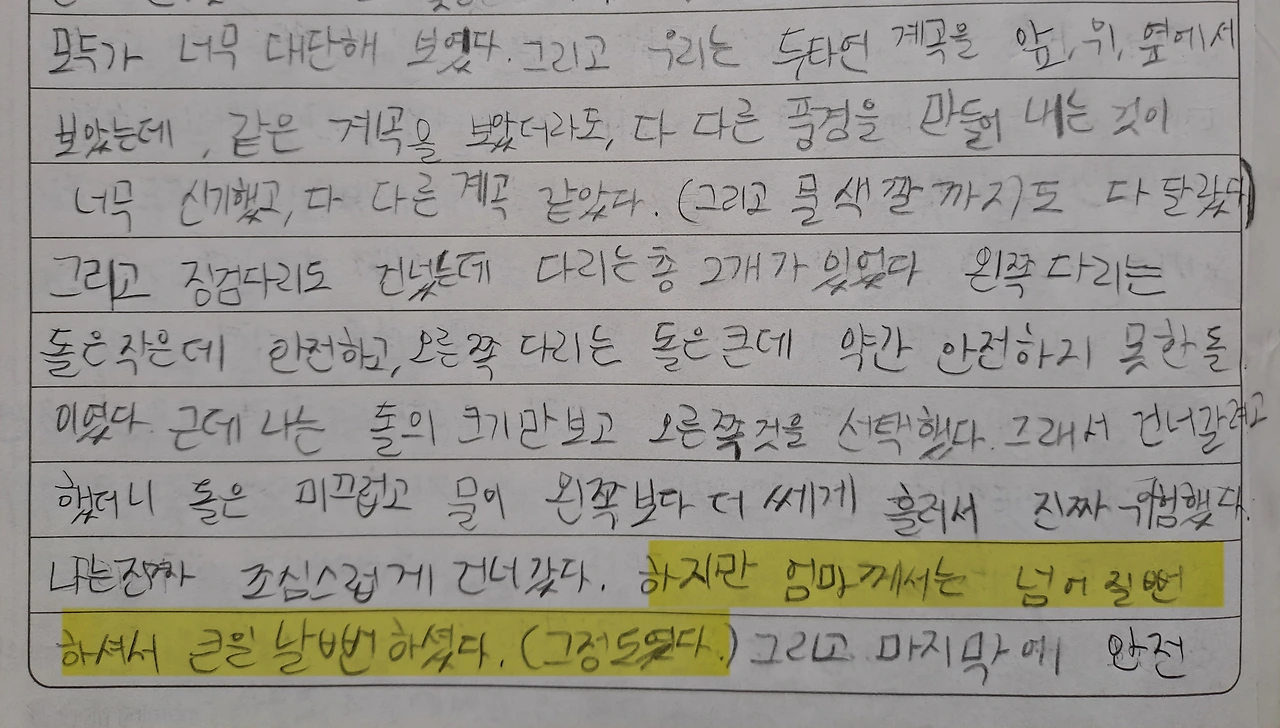 모두가 너무 대단해 보였다. 그리고 우리는 두타연 계곡을 앞, 위, 옆에서
보았는데, 같은 계곡을 보았더라도, 다 다른 풍경을 만들어 내는 것이
너무 신기했고, 다 다른 계곡 같았다. (그리고 물 색깔까지도 다 달랐다)
그리고 징검다리도 건넜는데 다리는 총 2개가 있었다 왼쪽 다리는
돌은 작은데 안전하고, 오른쪽 다리는 돌은 큰데 약간 안전하지 못한 돌
이였다. 근데 나는 돌의 크기만 보고 오른쪽것을 선택했다. 그래서 건너갈려고
했더니 돌은 미끄럽고 물이 왼쪽보다 더 쎄게 흘러서 진짜 위험했다.
나는 진짜 조심스럽게 건너갔다. 하지만 엄마께서는 넘어질뻔
하셔서 큰일 날뻔 하셨다. (그정도였다.) 그리고 마지막에 완전